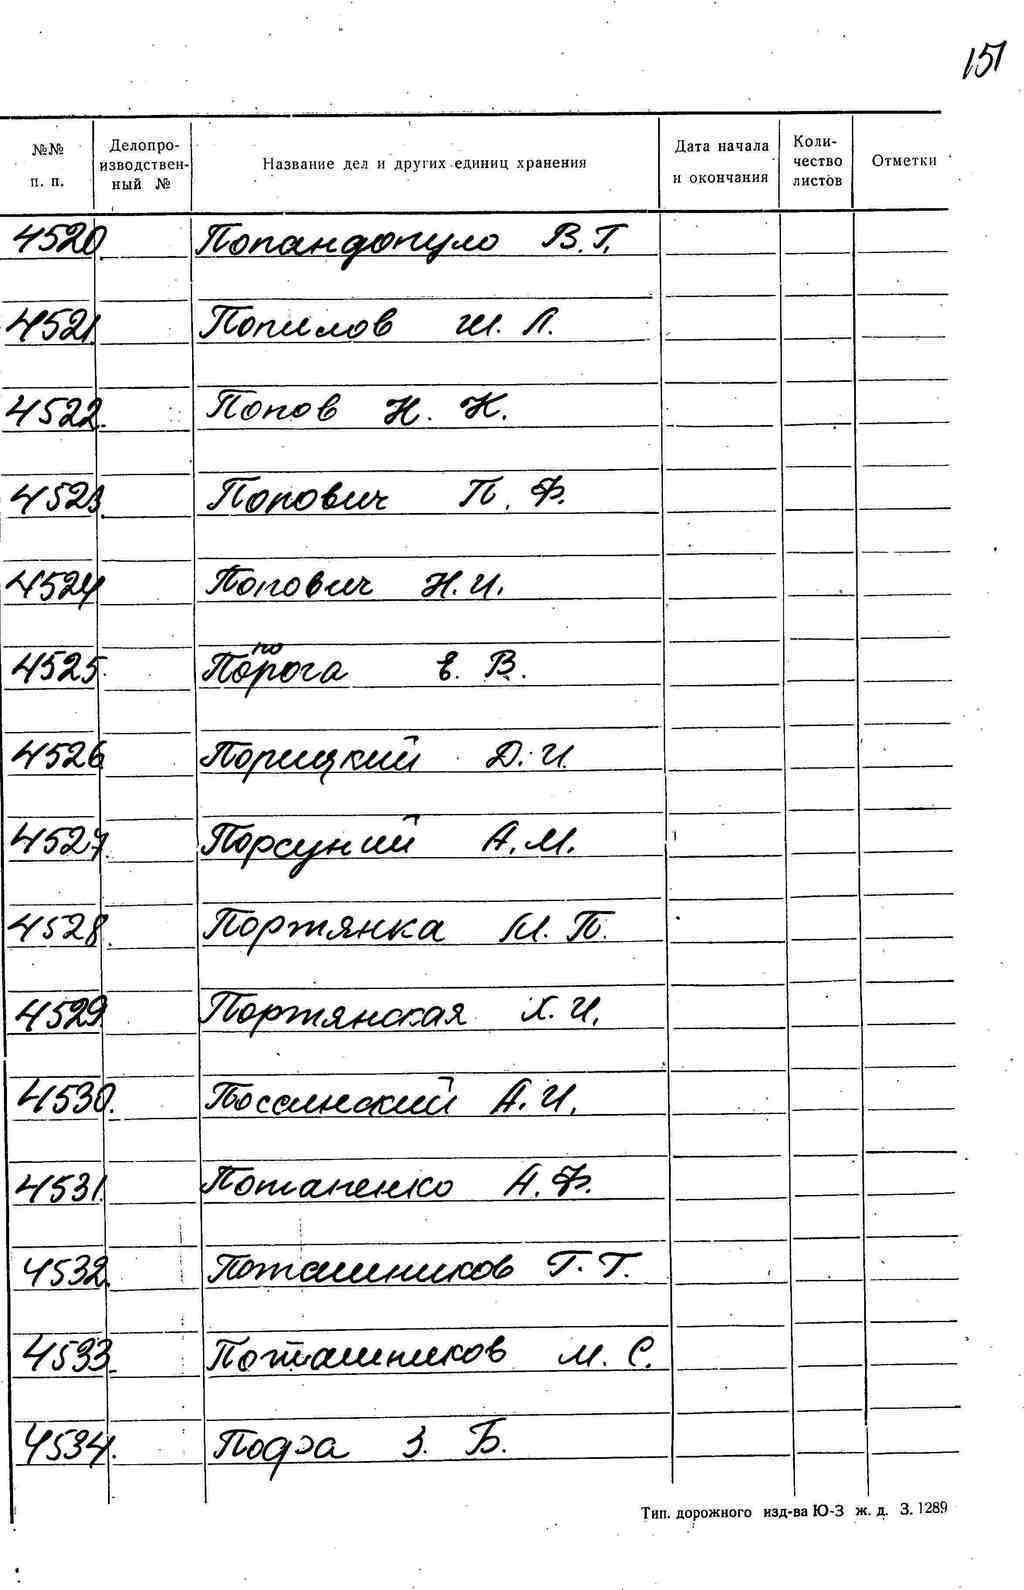 151
№№ п. п. Делопроизводственный № Название дел и других единиц хранения Дата начала и окончания Количество листов Отметки
4520 Попандопуло В.Г.
4521. Попилов Ш. Л.
4522. Попов Н. Н.
4523. Попович П. Ф.
4524 Попович Н. И.
4525. Порога по Е. В.
4526 Порицкий Д. И.
4527. Порсуний А. М.
4528. Портянка М. П.
4529. Портянская Х. И.
4530. Поссинский А. И.
4531. Потапенко А. Ф.
4532. Поташников Г. Г.
4533. Поташников М. С.
4534. З. Б.
Тип. дорожного изд-ва Ю-З ж. д. З. 1289